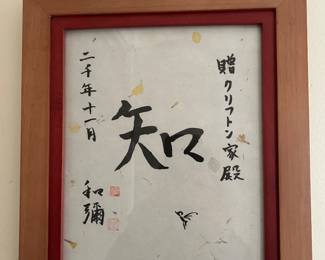 贈クリフトン家殿
知
二千年十一月
和彌